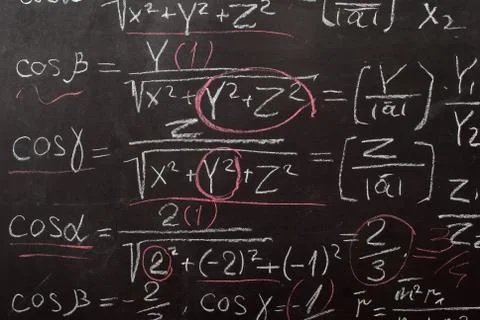 √x²+Y²+Z² |a| X₂
cos β = Y (1) / √x²+Y²+Z² = (Y / |a|) · Y₁ / Y₂
cos γ = Z / √x²+Y²+Z² = [Z / |a|] Z
cos α = 2 (1) / √2²+(-2)²+(-1)² = 2/3 = 3/4
cos β = -2/3, cos γ = -1